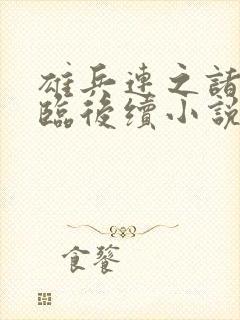 雄兵連之諸
臨後續小說
食饕